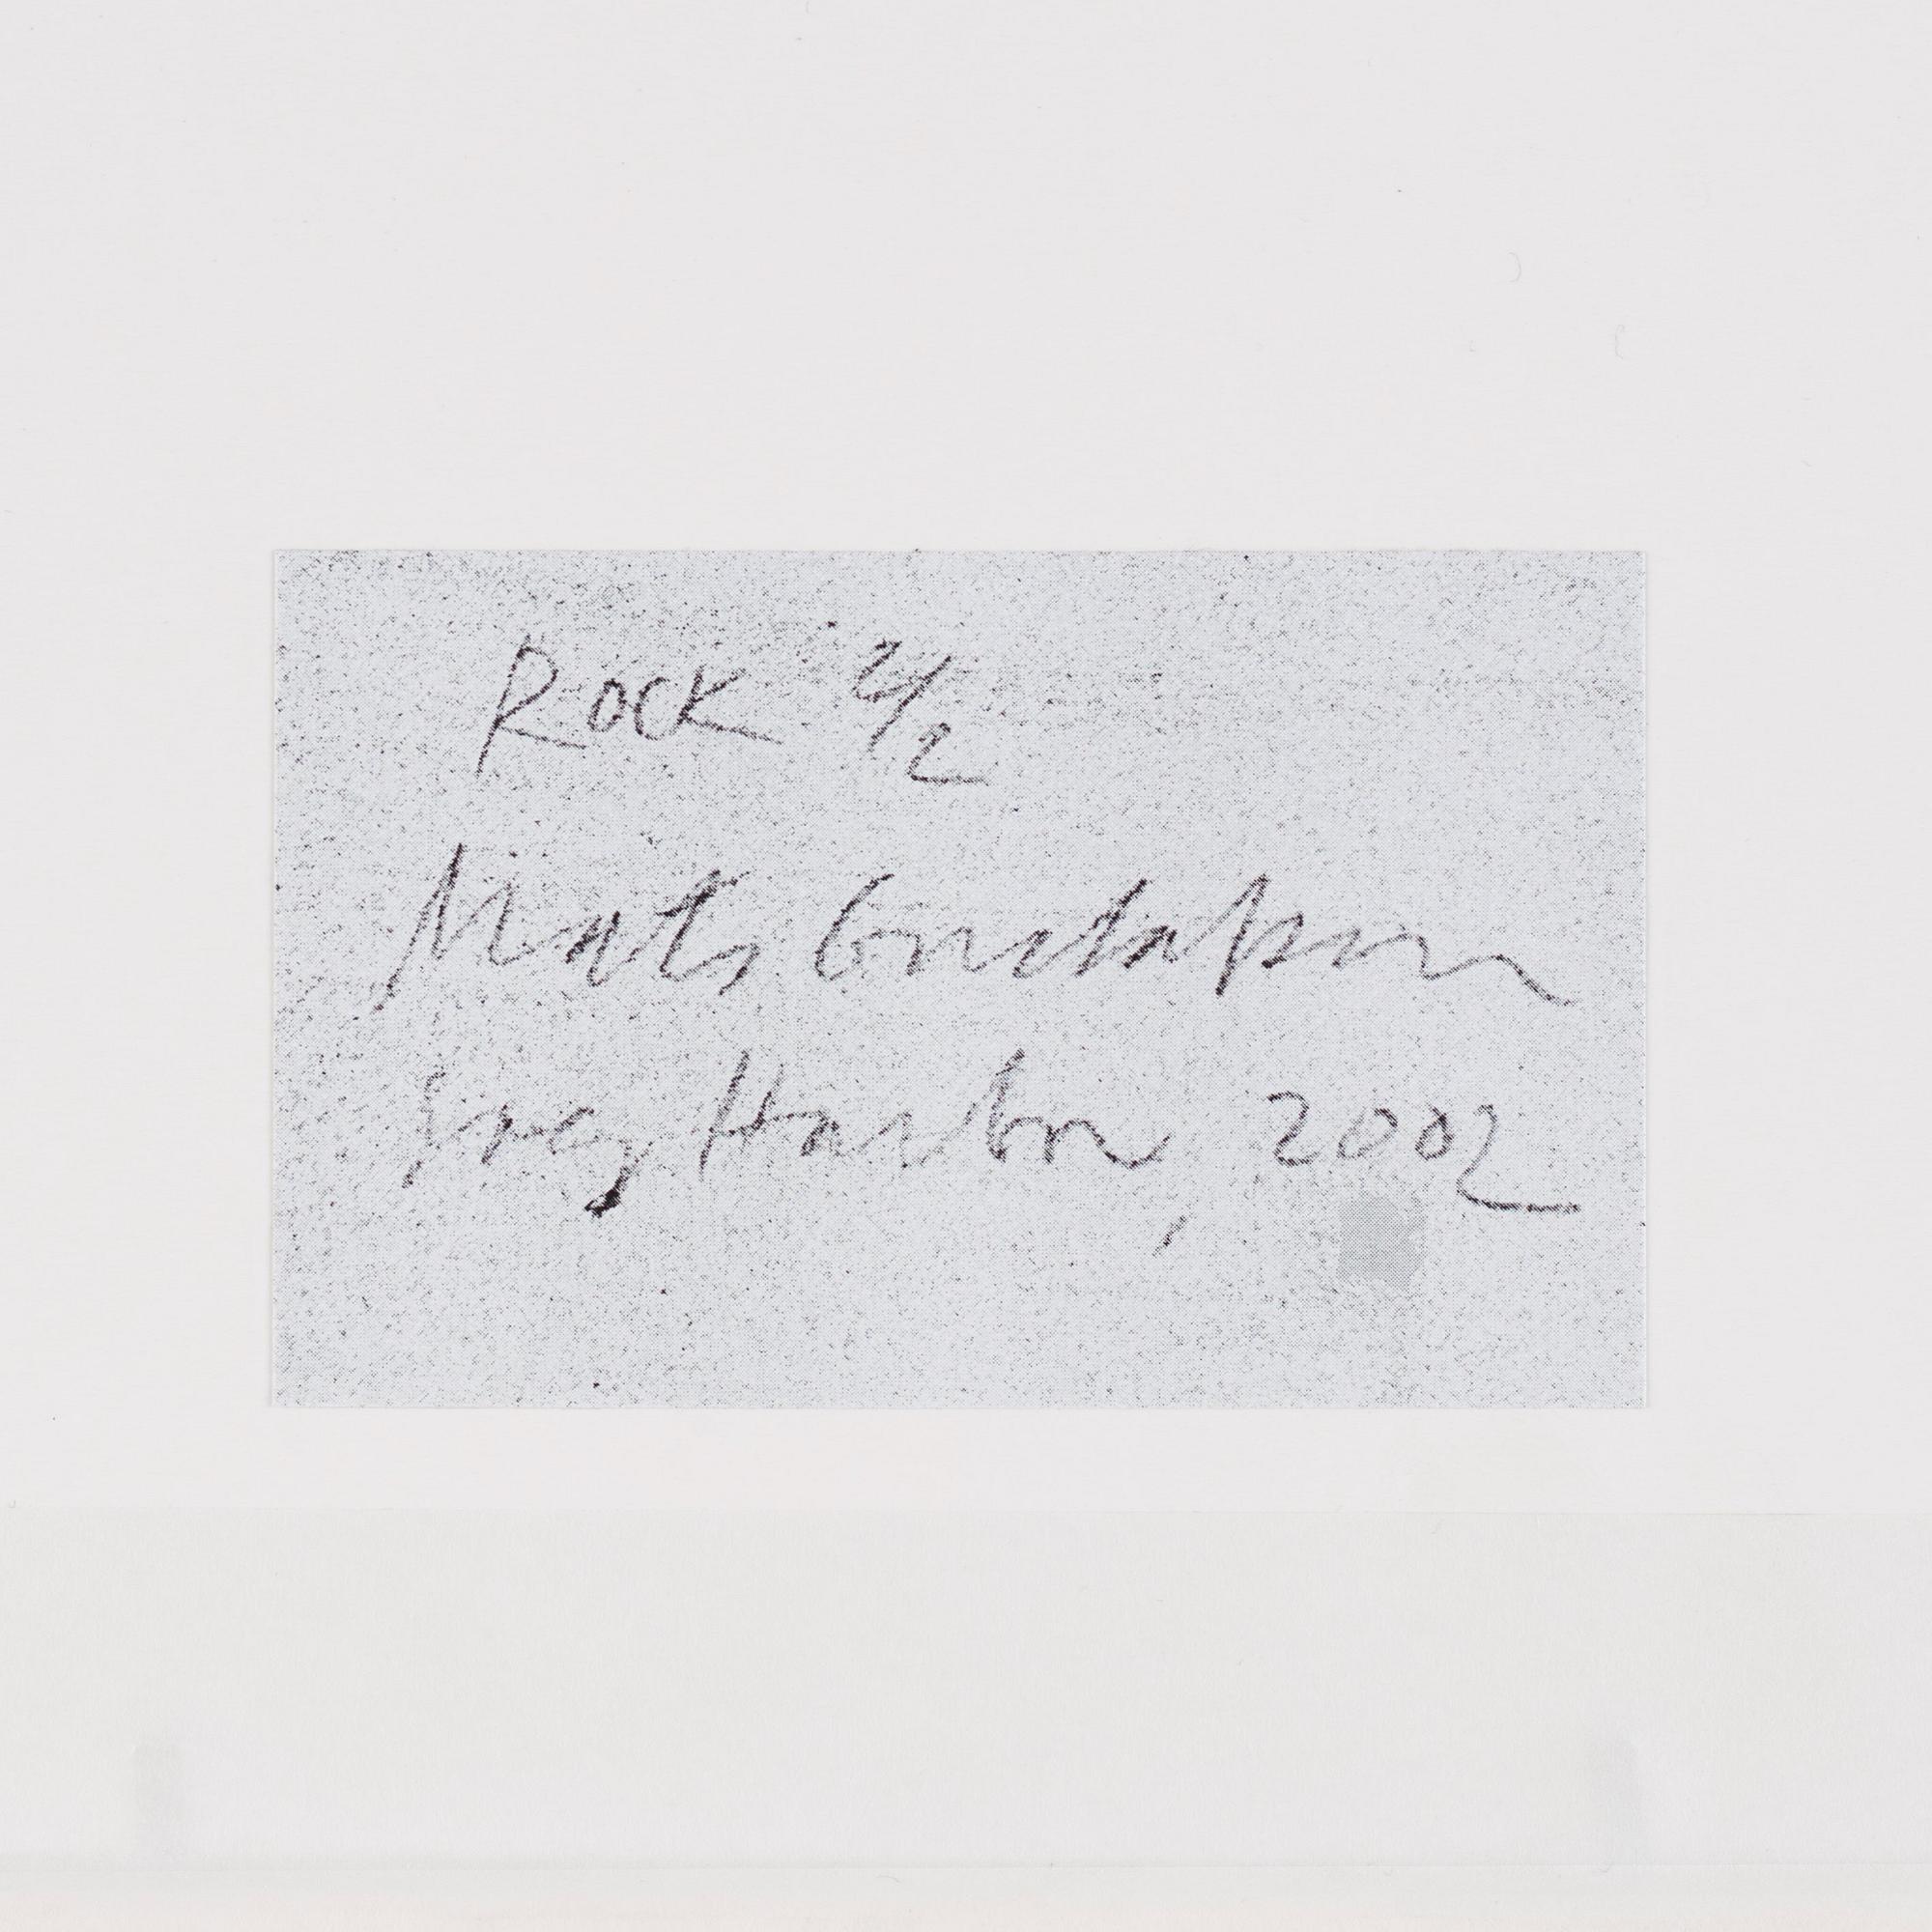 Rock 2/2
Mats Gustafson
Sag Harbor, 2002